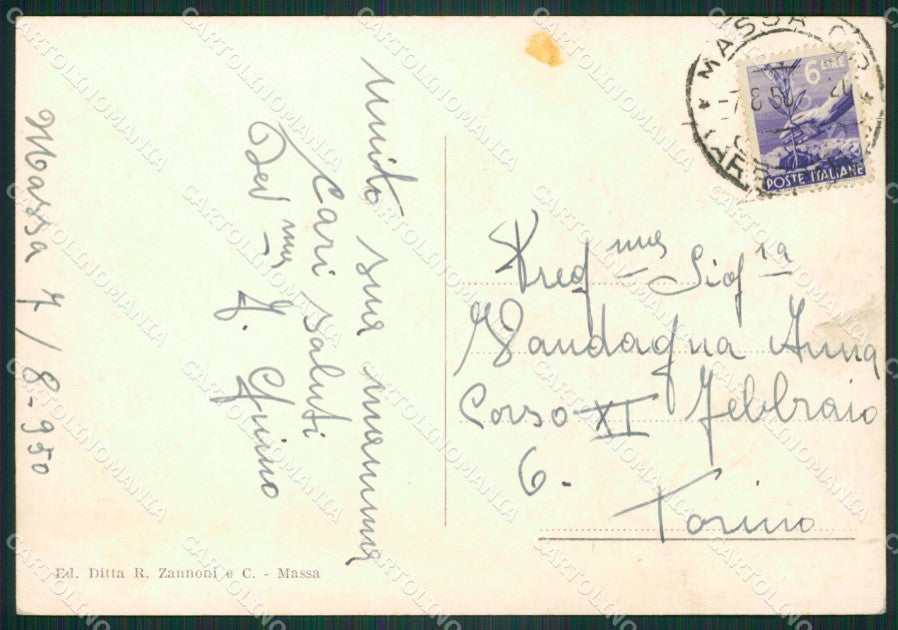 Massa 7/8-950
unito sua mamma
Cari saluti
Dev mo
Ed. Ditta R. Zannoni e C. - Massa
MASSA
6 LIRE
POSTE ITALIANE
Preg ma Sig ra
Vandagna Anna
Corso XI Febbraio
6.
Torino
CARTOLINOMANIA